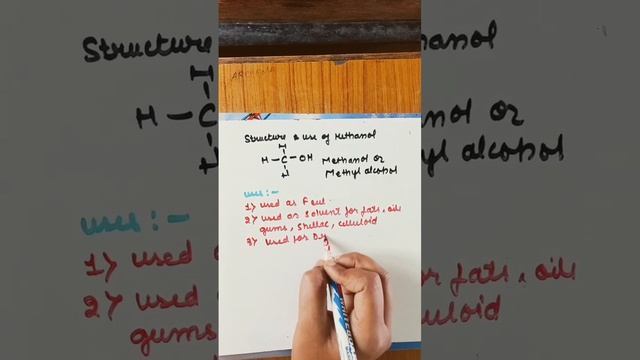 Structure & use of Methanol
H
H-C-OH Methanol or
H Methyl alcohol
uses:-
1) used as Fuel.
2) used as Solvent for fats, oils
gums, Shellac, celluloid
3) used for Dy